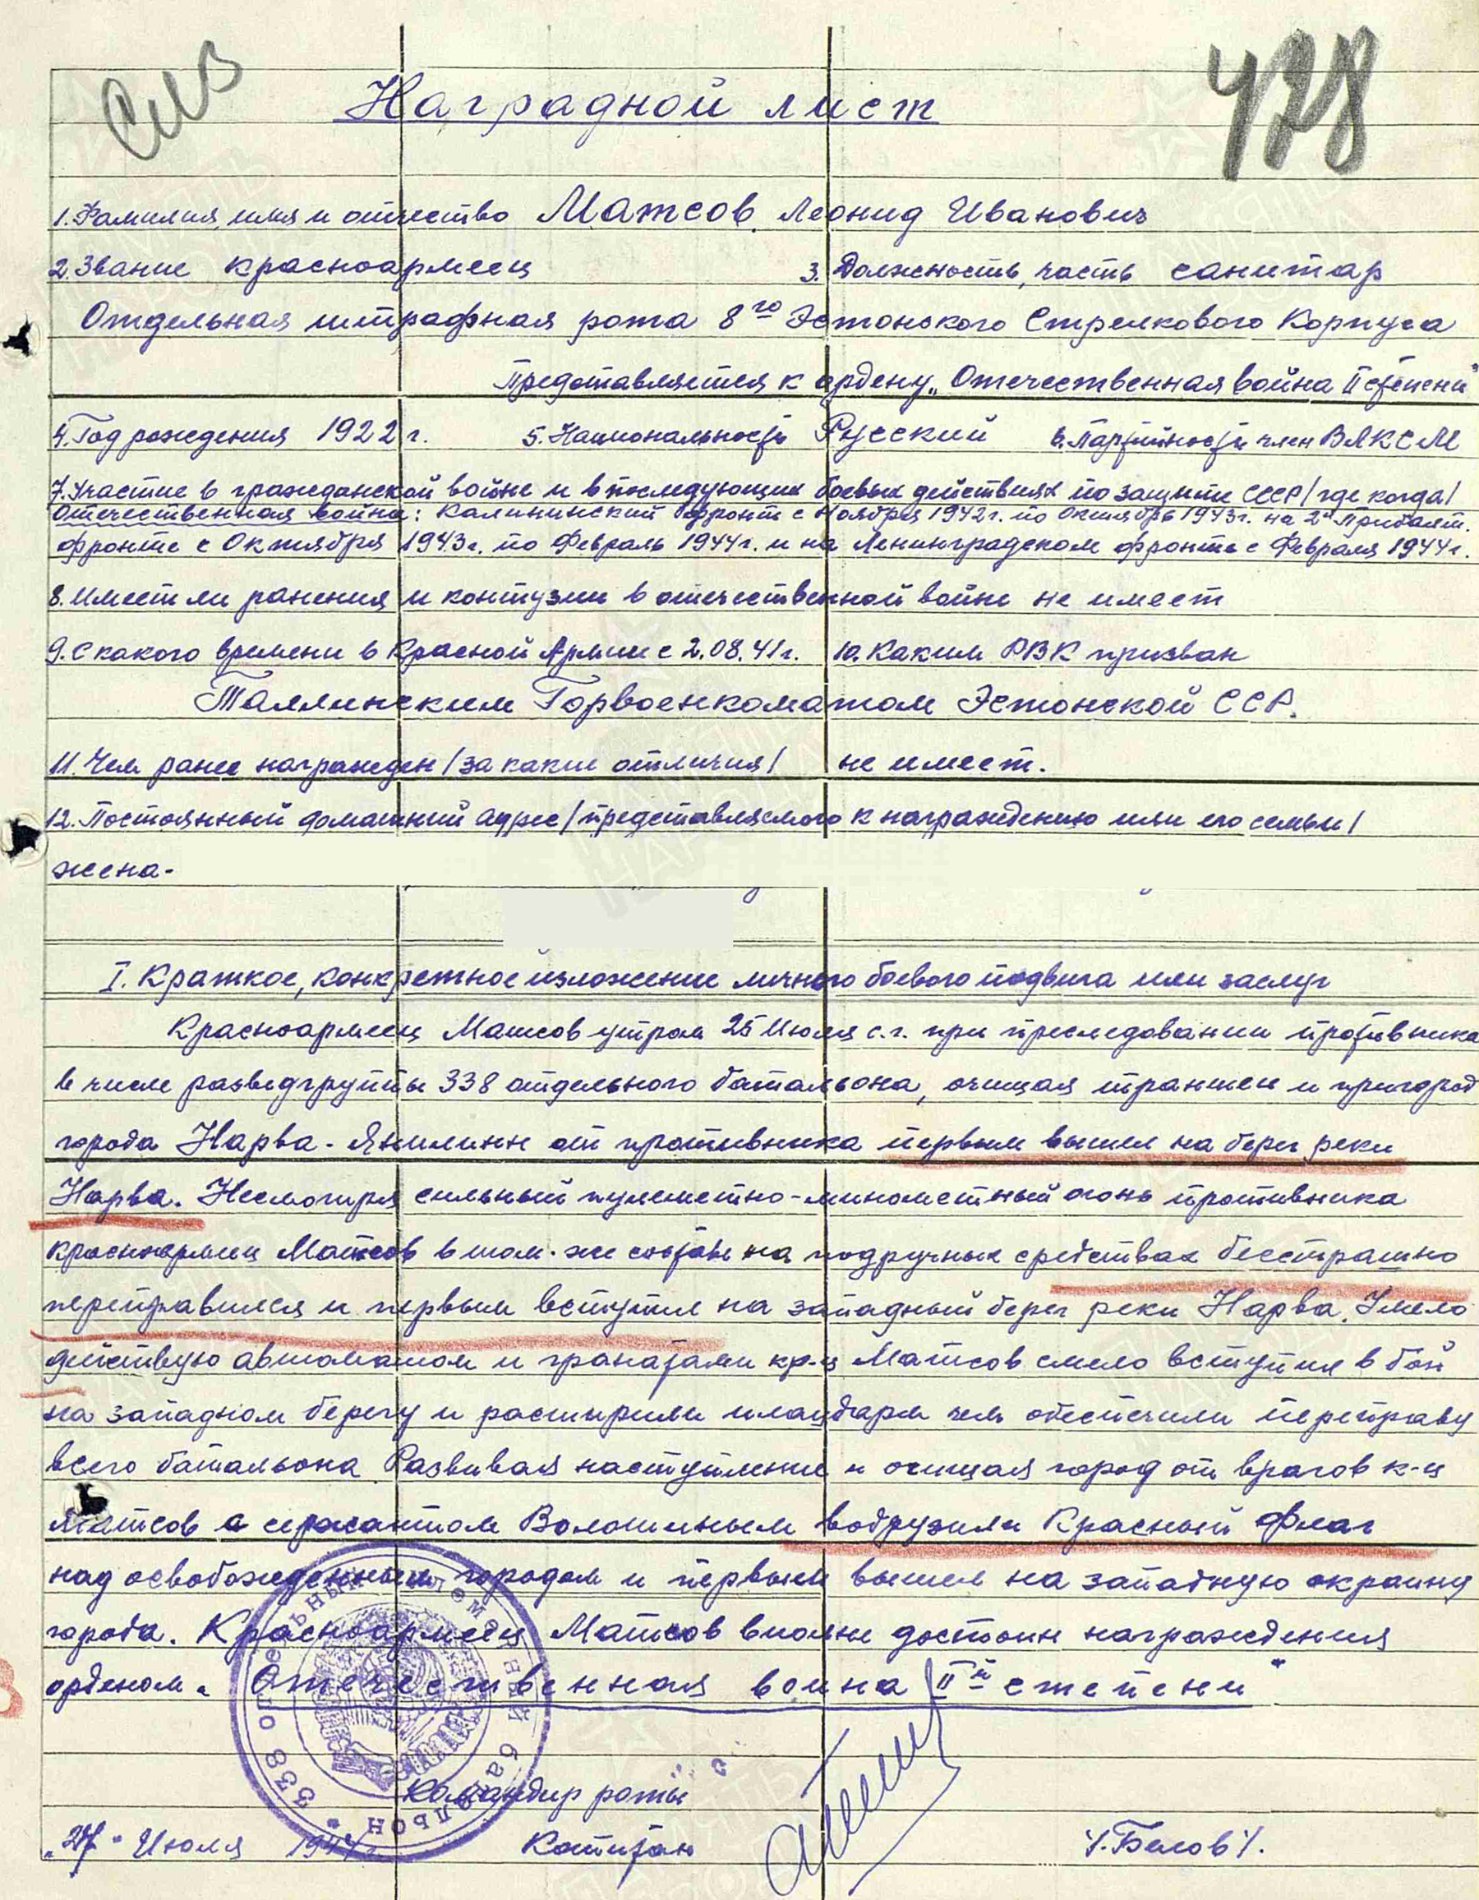 428
Наградной лист
1. Фамилия, имя и отчество Матсов Леонид Иванович
2. Звание красноармеец 3. Должность, часть санитар
Отдельная штрафная рота 8го Эстонского Стрелкового Корпуса
Представляется к ордену „Отечественная война II степени"
4. Год рождения 1922 г. 5. Национальность Русский 6. Партийность член ВЛКСМ
7. Участие в гражданской войне и в последующих боевых действиях по защите СССР /где когда/
Отечественная война: Калининский фронт с Ноября 1942 г. по Октябрь 1943 г. на 2м Прибалт.
фронте с Октября 1943 г. по Февраль 1944 г. и на Ленинградском фронте с Февраля 1944 г.
8. Имеет ли ранения и контузии в отечественной войне не имеет
9. С какого времени в Красной Армии с 2.08.41 г. 10. Каким РВК призван
Таллинским Горвоенкоматом Эстонской ССР.
11. Чем ранее награжден /за какие отличия/ не имеет.
12. Постоянный домашний адрес /представляемого к награждению или его семьи/
жена-
I. Краткое, конкретное изложение личного боевого подвига или заслуг
Красноармеец Матсов утром 25 Июля с.г. при преследовании противника
в числе разведгруппы 338 отдельного батальона, очищая траншеи и пригород
города Нарва-Янилинн от противника первым вышел на берег реки
Нарва. Несмотря сильный пулеметно-минометный огонь противника
красноармеец Матсов в том-же составе на подручных средствах бесстрашно
переправился и первым вступил на западный берег реки Нарва. Умело
действую автоматом и гранатами кр-ц Матсов смело вступил в бой
на западном берегу и расширили плацдарм чем обеспечили переправу
всего батальона. Развивая наступление и очищая город от врагов к-ц
Матсов с сержантом Волошиным водрузили Красный Флаг
над освобожденным городом и первым вышел на западную окраину
города. Красноармеец Матсов вполне достоин награждения
орденом „Отечественная война IIй степени"
338 отдельный батальон
Командир роты
„27" Июля 1944 г. Капитан /Белов/.